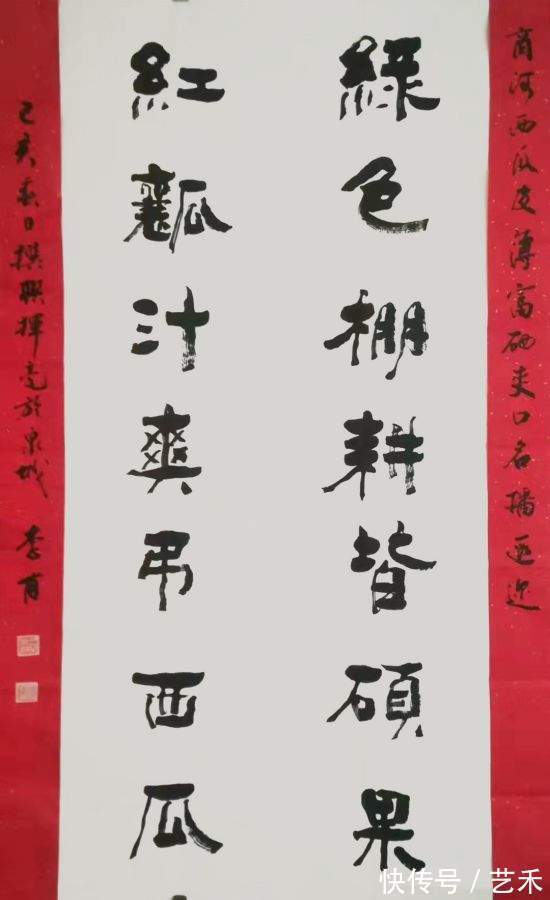 商河西瓜皮薄富硒爽口名播遐迩
綠色棚耕皆碩果
紅瓤汁爽吊西瓜
己亥春日撰聯揮毫於泉城 李
快传号 / 艺禾